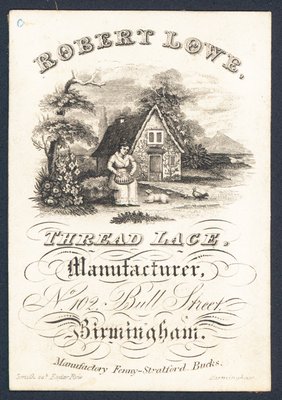 ROBERT LOWE,
THREAD LACE,
Manufacturer,
No. 102, Bull Street
Birmingham.
Manufactory Fenny-Stratford Bucks.
Birmingham